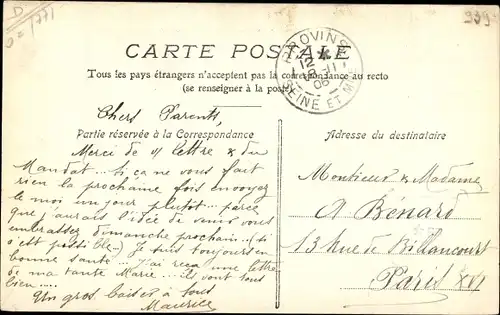 CARTE POSTALE
Tous les pays étrangers n'acceptent pas la correspondance au recto
(se renseigner à la poste)
PROVINS
SEINE ET M
Partie réservée à la Correspondance
Adresse du destinataire
Chers Parents,
Merci de v/ lettre & du
Mandat... si ça ne vous fait
rien la prochaine fois envoyez
le moi un jour plutot... parce
que j'aurais l'idée de venir vous
embrasser dimanche prochain.. (si
c'est possible..) Je suis toujours en
bonne santé.. J'ai reçu une lettre
de ma tante Marie... ils vont tous
bien....
Un gros baiser à tous
Maurice
Monsieur & Madame
A Bénard
13 rue de Billancourt
Paris XVI